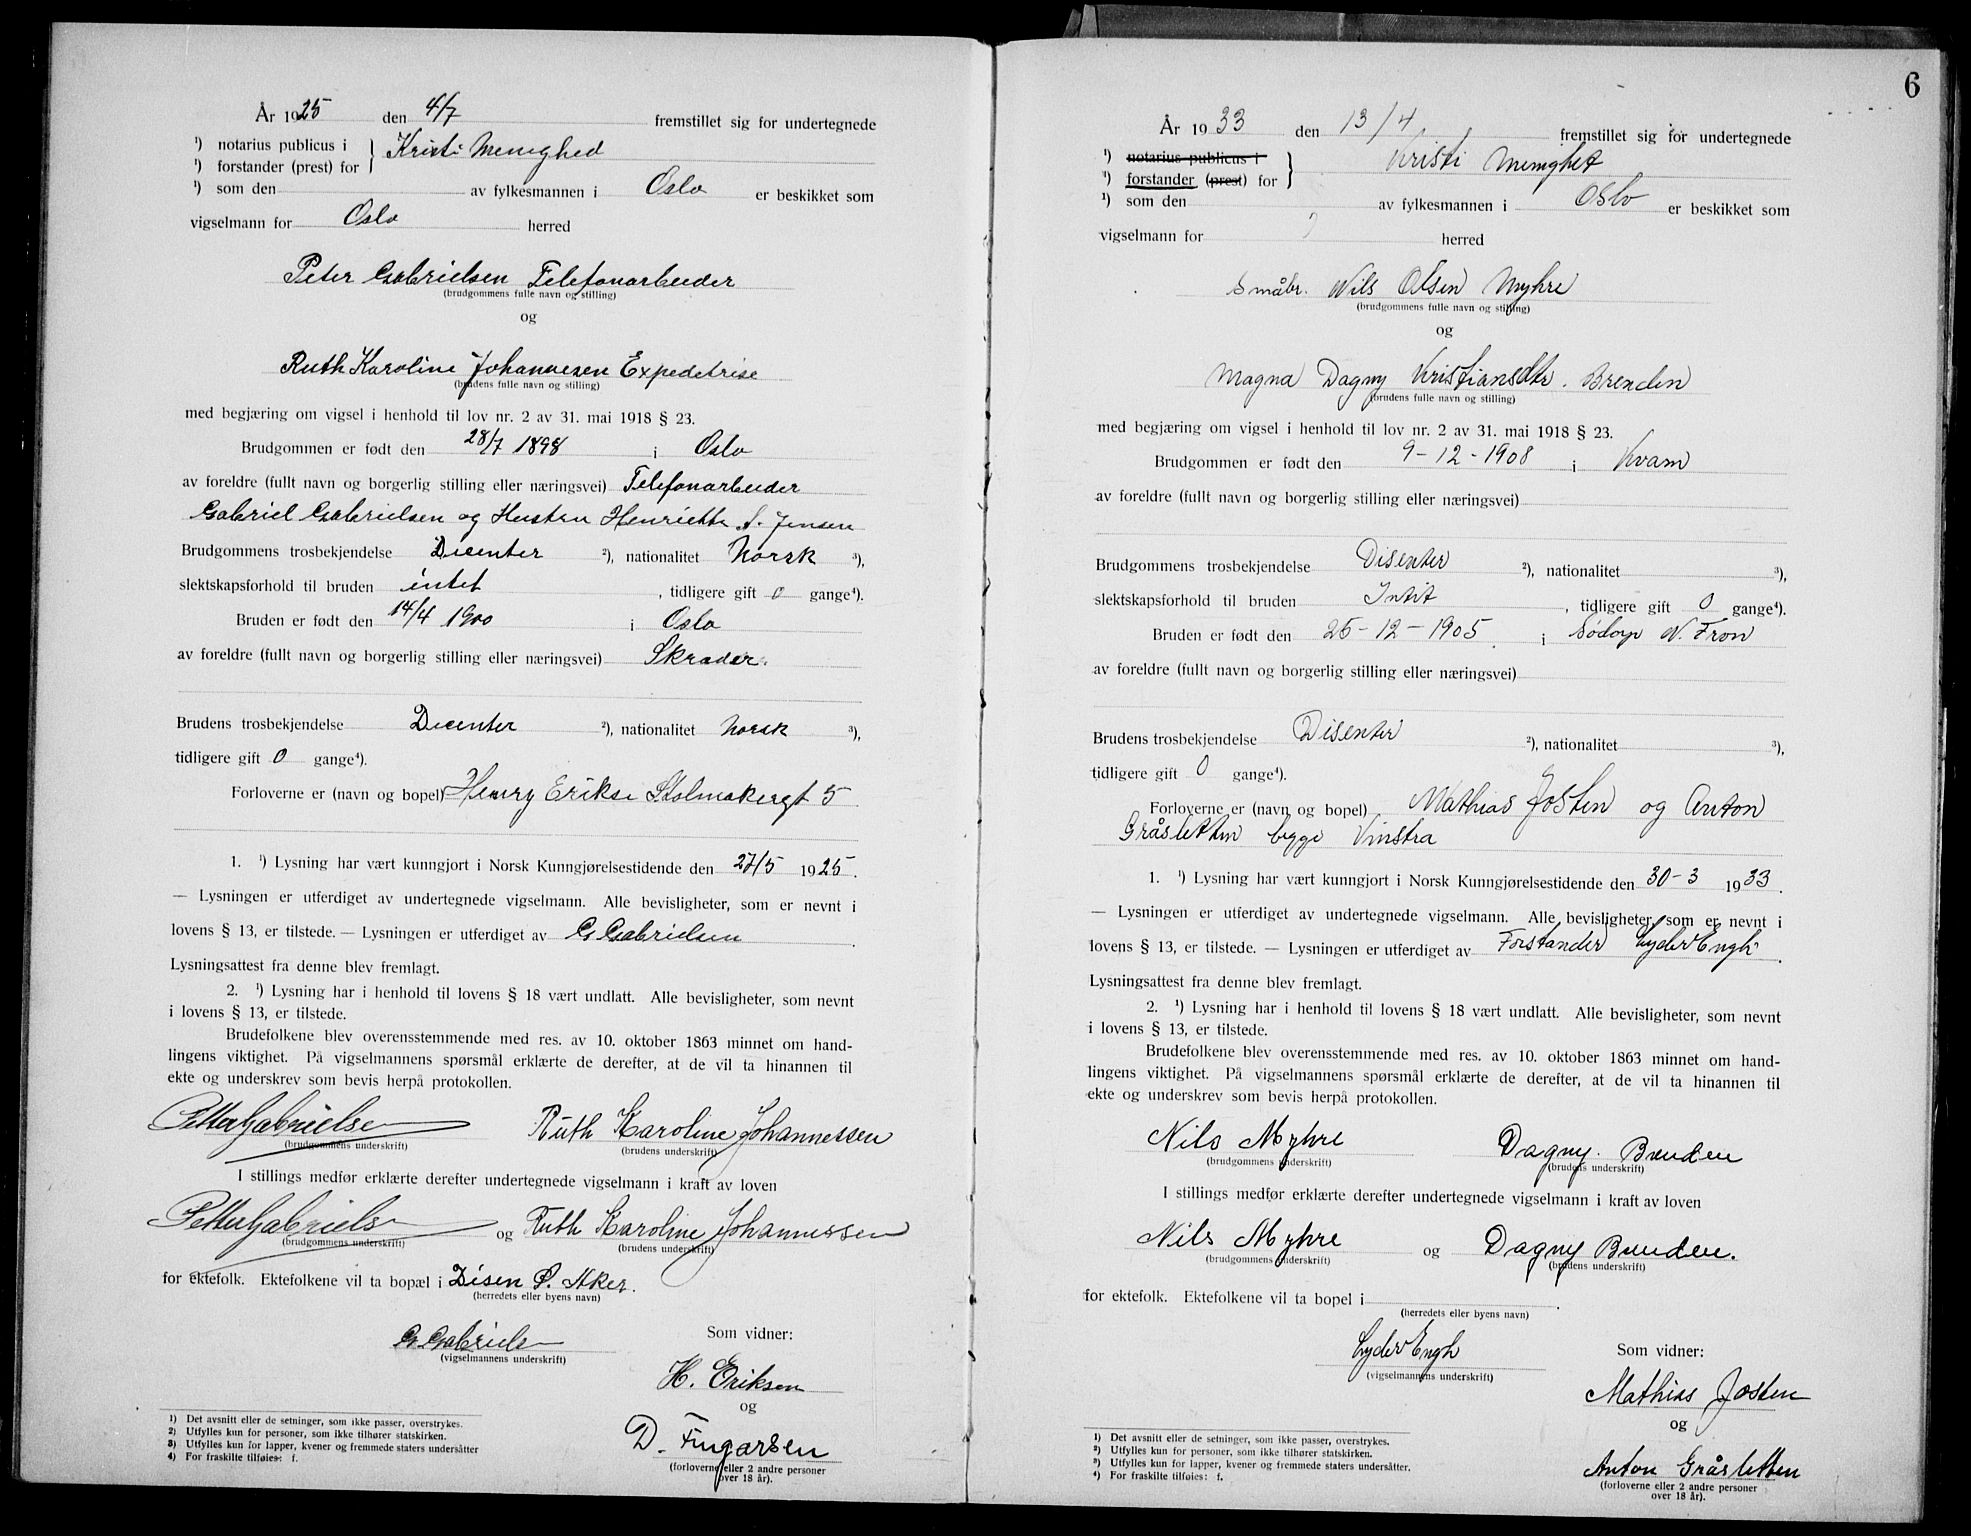 År 1925 den 4/7 fremstillet sig for undertegnede
¹) notarius publicus i
¹) forstander (prest) for } Kristi Menighed
¹) som den av fylkesmannen i Oslo er beskikket som
vigselmann for Oslo herred
Peter Gabrielsen Telefonarbeider
(brudgommens fulle navn og stilling)
og
Ruth Karoline Johannesen Expeditrise
(brudens fulle navn og stilling)
med begjæring om vigsel i henhold til lov nr. 2 av 31. mai 1918 § 23.
Brudgommen er født den 28/7 1898 i Oslo
av foreldre (fullt navn og borgerlig stilling eller næringsvei) Telefonarbeider
Gabriel Gabrielsen og Hustru Henriette S. Jensen
Brudgommens trosbekjendelse Dicenter ²), nationalitet Norsk ³),
slektskapsforhold til bruden intet , tidligere gift 0 gange⁴).
Bruden er født den 14/4 1900 i Oslo
av foreldre (fullt navn og borgerlig stilling eller næringsvei) Skræder.
Brudens trosbekjendelse Dicenter ²), nationalitet Norsk ³),
tidligere gift 0 gange⁴).
Forloverne er (navn og bopel) Henry Erikse Stolmakergt 5
1. ¹) Lysning har vært kunngjort i Norsk Kunngjørelsestidende den 27/5 1925.
— Lysningen er utferdiget av undertegnede vigselmann. Alle bevisligheter, som er nevnt i
lovens § 13, er tilstede. — Lysningen er utferdiget av G Gabrielsen .
Lysningsattest fra denne blev fremlagt.
2. ¹) Lysning har i henhold til lovens § 18 vært undlatt. Alle bevisligheter, som nevnt
i lovens § 13, er tilstede.
Brudefolkene blev overensstemmende med res. av 10. oktober 1863 minnet om hand-
lingens viktighet. På vigselmannens spørsmål erklærte de derefter, at de vil ta hinannen til
ekte og underskrev som bevis herpå protokollen.
Petter Gabrielsen Ruth Karoline Johannessen
(brudgommens underskrift) (brudens underskrift)
I stillings medfør erklærte derefter undertegnede vigselmann i kraft av loven
Petter Gabrielsen og Ruth Karoline Johannessen
(brudgommens underskrift) (brudens underskrift)
for ektefolk. Ektefolkene vil ta bopæl i Disen Ø. Aker.
(herredets eller byens navn)
G Gabrielsen Som vidner:
(vigselmannens underskrift)
H. Eriksen
og
D. Fingarsen
(forloverne eller 2 andre personer
over 18 år).
¹) Det avsnitt eller de setninger, som ikke passer, overstrykes.
²) Utfylles kun for personer, som ikke tilhører statskirken.
³) Utfylles kun for lapper, kvener og fremmede staters undersåtter
⁴) For fraskilte tilføies: f.
6
År 1933 den 13/4 fremstillet sig for undertegnede
¹) notarius publicus i
¹) forstander (prest) for } Kristi Menighet
¹) som den av fylkesmannen i Oslo er beskikket som
vigselmann for herred
Småbr. Nils Olsen Myhre
(brudgommens fulle navn og stilling)
og
Magna Dagny Kristiansdtr. Brenden
(brudens fulle navn og stilling)
med begjæring om vigsel i henhold til lov nr. 2 av 31. mai 1918 § 23.
Brudgommen er født den 9-12-1908 i Kvam
av foreldre (fullt navn og borgerlig stilling eller næringsvei)
Brudgommens trosbekjendelse Disenter ²), nationalitet ³),
slektskapsforhold til bruden Intit , tidligere gift 0 gange⁴).
Bruden er født den 25-12-1905. i Sødorp N. Fron
av foreldre (fullt navn og borgerlig stilling eller næringsvei)
Brudens trosbekjendelse Disenter ²), nationalitet ³),
tidligere gift 0 gange⁴).
Forloverne er (navn og bopel) Mathias Josten og Anton
Gråsletten begge Vinstra
1. ¹) Lysning har vært kunngjort i Norsk Kunngjørelsestidende den 30-3 1933.
— Lysningen er utferdiget av undertegnede vigselmann. Alle bevisligheter, som er nevnt i
lovens § 13, er tilstede. — Lysningen er utferdiget av Forstander Lyder Engh .
Lysningsattest fra denne blev fremlagt.
2. ¹) Lysning har i henhold til lovens § 18 vært undlatt. Alle bevisligheter, som nevnt
i lovens § 13, er tilstede.
Brudefolkene blev overensstemmende med res. av 10. oktober 1863 minnet om hand-
lingens viktighet. På vigselmannens spørsmål erklærte de derefter, at de vil ta hinannen til
ekte og underskrev som bevis herpå protokollen.
Nils Myhre Dagny Brenden
(brudgommens underskrift) (brudens underskrift)
I stillings medfør erklærte derefter undertegnede vigselmann i kraft av loven
Nils Myhre og Dagny Brenden.
(brudgommens underskrift) (brudens underskrift)
for ektefolk. Ektefolkene vil ta bopel i .
(herredets eller byens navn)
Lyder Engh Som vidner:
(vigselmannens underskrift)
Mathias Josten
og
Anton Gråsletten
(forloverne eller 2 andre personer
over 18 år).
¹) Det avsnitt eller de setninger, som ikke passer, overstrykes.
²) Utfylles kun for personer, som ikke tilhører statskirken.
³) Utfylles kun for lapper, kvener og fremmede staters undersåtter.
⁴) For fraskilte tilføies: f.